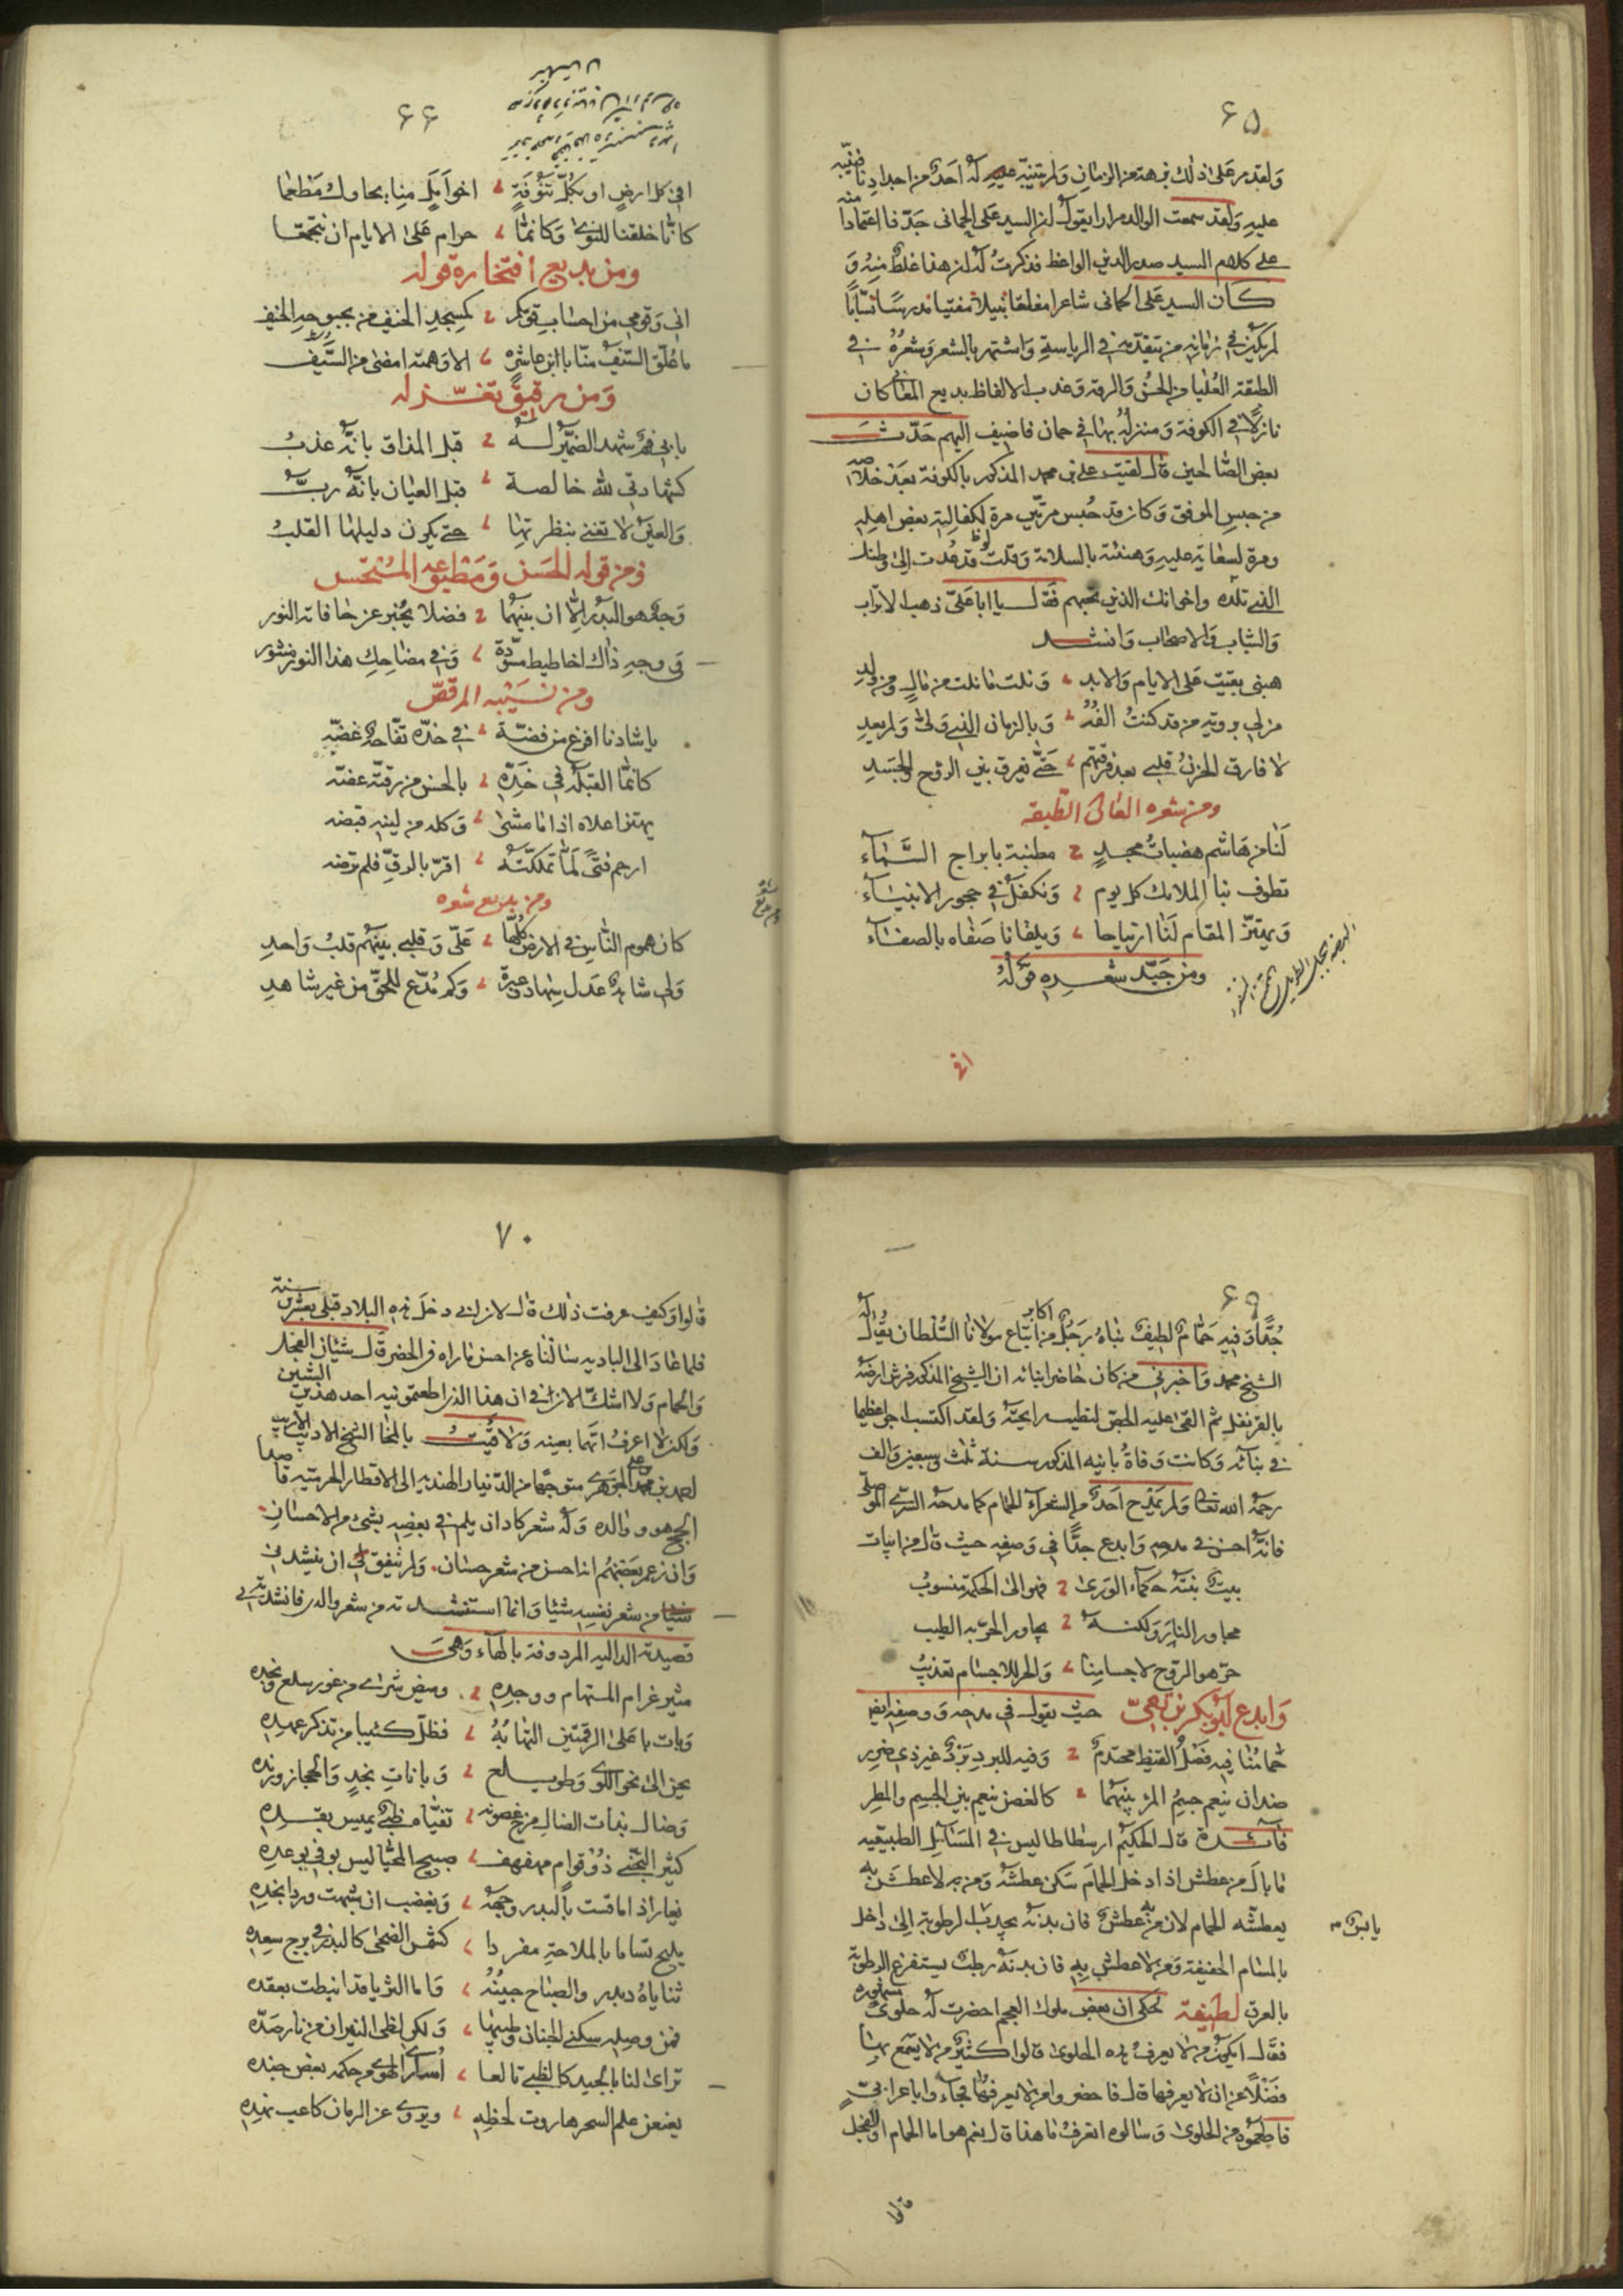 ٦٥
ولقد مر على ذلك برهة من الزمان ولم يتنبه عليه له احد من اجدادنا فنبه
عليه ولقد سمعت الوالد مرارا يقول ان السيد على الحمانى جدنا اعتمادا منه
على كلام السيد صدر الدين الواعظ فذكرت له ان هذا غلط منه و
كان السيد على الحمانى شاعرا مفلقا نبيلا مفتيا مدرسا نسابا
لم يكن فى زمانه من يتقدمه فى الرياسة واشتهر بالشعر وشعره فى
الطبقة العليا من الحسن والرقة وعذب الالفاظ بديع المعانى كان
نازلا فى الكوفة ومنزله بها فى حمان فاضيف اليهم حدث
بعض الصالحين قال لقيت على بن محمد المذكور بالكوفة بعد خلاصه
من حبس الموفق وكان قد حبس مرتين مرة لكفالته بعض اهله
ومرة لسعاية عليه وهنئته بالسلامة وقلت قد عدت الى وطنك
الذى تلذه واخوانك الذين تحبهم فقال يا ابا على ذهب الاتراب
والشباب والاصحاب وانشد
هبنى بقيت على الايام والابد ونلت ما نلت من مال ومن ولد
من لى برؤية من قد كنت الفه وبالزمان الذى ولى ولم يعد
لا فارق الحزن قلبى بعد فرقتهم حتى يفرق بين الروح والجسد
ومن شعره العالى الطبقه
لنا من هاشم هضبات مجد مطنبة بابراج السماء
تطوف بنا الملائك كل يوم ونكفل فى حجور الانبياء
ويهتز المقام لنا ارتياحا ويلقانا صفاه بالصفاء
ومن جيد شعره قوله
افى
٦٦
افى كل ارض او بكل تنوفة اخوا امل منا يحاول مطعما
كانا خلقنا للنوى وكانما حرام على الايام ان نتجمعا
ومن بديع افتخاره قوله
انى وقومى من احساب قومكم كمسجد الخيف من بحبوحة الخيف
ما علق السيف منا بابن عاشرة الا وهمته امضى من السيف
ومن رقيق تغزله
بابى فم شهد الضمير له قبل المذاق بانه عذب
كشهادتى لله خالصة قبل العيان بانه رب
والعين لا تغنى بنظرتها حتى يكون دليلها القلب
ومن قوله الحسن ومطبوعه المستحسن
وجه هو البدر الا ان بينهما فضلا يخبر عن حافاته النور
فى وجه ذاك اخاطيط مسودة وفى مضاحك هذا النور منثور
ومن نسيبه المرقص
يا شادنا افرغ من فضة فى خده تفاحة غضه
كانما القبلة فى خده بالحسن من رقته عضه
يهتز اعلاه اذا ما مشى وكله من لينه قبضه
ارحم فتى لما تملكته اقر بالرق فلم ترضه
ومن بديع شعره
كان هموم الناس فى الارض كلها على وقلبى بينهم قلب واحد
ولى شاهدا عدل سهاد وعبرة وكم مدع للحق من غير شاهد
٦٩
جدا وفيه حمام لطيف بناه رجل من اكابر اتباع مولانا السلطان يقال له
الشيخ محمد واخبرنى من كان حاضرا بنائه ان الشيخ المذكور فرش ارضه
بالقرنفل ثم القى عليه الجص لتطيب رايحته ولقد اكتسب اجرا عظيما
فى بنائه وكانت وفاة بانيه المذكور سنة ثلث وسبعين والف
رحمه الله تعالى ولم يمدح احد من الشعراء الحمام كما مدحه السرى الموصلى
فانه احسن فى مدحه وابدع جدا فى وصفه حيث قال من ابيات
بيت بنته حكماء الورى فهو الى الحكمة منسوب
مجاور النار ولكنه يجاور الحر به الطيب
حر هو الروح لاجسامنا والحر للاجسام تعذيب
وابدع ابو بكر بن بقى حيث يقول فى مدحه ووصفه ايضا
حمامنا فيه فصل القيظ محتدم وفيه للبرد برد غير ذى ضرر
ضدان ينعم جسم المرء بينهما كالغصن ينعم بين الجسم والمطر
فائدة قال الحكيم ارسطاطاليس فى المسائل الطبيعيه
ما بال من عطش اذا دخل الحمام سكن عطشه ومن به لا عطش به
يعطشه الحمام لان من به عطش فان بدنه يجذب الرطوبة الى داخل
يابس م
بالمسام الخفيفة ومن لا عطش به فان بدنه رطب يستفرغ الرطوبة
بالعرق لطيفة يحكى ان بعض ملوك العجم احضرت له حلوى
فقال ايكون من لا يعرف هذه الحلوى قالوا كثير من لا يسمع بها
فضلا عن ان لا يعرفها قال فاحضروا من لا يعرفها فجاءوا باعرابى
فاطعموه من الحلوى وسالوه اتعرف ما هذا قال نعم هو اما الحمام او الفجل
قالوا
٧٠
قالوا وكيف عرفت ذلك قال لان ابى دخل هذه البلاد قبلى بعشرين سنة
فلما عاد الى البادية سالناه عن احسن ما راه فى الحضر قال شيئان الفجل
والحمام ولا اشك لان ان هذا الذى اطعمتمونيه احد هذين الشيئين
ولكن لا اعرف ايهما بعينه ولاقيت بالمخا الشيخ الاديب الاريب
احمد بن محمد على الجوهرى متوجها من الديار الهندية الى الاقطار الحرمية قاصدا
الحج هو ووالده وله شعر كاد ان يلم فى بعضه بشىء من الاحسان
وان زعم بعضهم انه احسن من شعر حسان ولم يتفق لى ان ينشدنى
شيئا من شعر نفسه شيئا وانما استنشدته من شعر والده فانشدنى
قصيدته الداليه المردوفة بالهاء وهى
مثير غرام المستهام ووجده وميض سرى من غور سلع ونجده
وبات باعلى الرقمتين التهابه فظل كئيبا من تذكر عهده
يحن الى نحو اللوى وطويلع وبانات نجد والحجاز ورنده
وضال بذات الضال مرخ غصونه تفياه ظبى يميس بقده
كثير التجنى ذو قوام مهفهف صبيح المحيا ليس يوفى بوعده
يغار اذا ما قست بالبدر وجهه ويغضب ان شبهت وردا بخده
مليح تسامى بالملاحة مفردا كشمس الضحى كالبدر فى برج سعده
ثناياه در والصباح جبينه واما الثريا قد انيطت بعقده
فمن وصله سكنى الجنان وطيبها ولكن لظى النيران من نار صده
تراءى لنا بالجيد كالظبى تالعا اسارى الهوى من حكمه بعض جنده
يعنعن علم السحر هاروت لحظه ويروى عن الرمان كاعب نهده